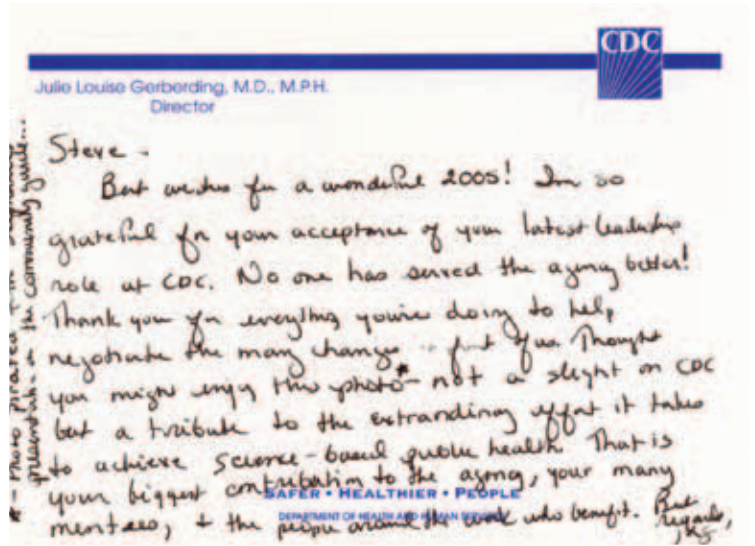 CDC
Julie Louise Gerberding, M.D., M.P.H.
Director
Steve -
Best wishes for a wonderful 2005! Im so
grateful for your acceptance of your latest leadership
role at CDC. No one has served the agency better!
Thank you for everything you're doing to help
negotiate the many changes fun Thought
you might enjoy this photo* - not a slight on CDC
but a tribute to the extraordinary effort it takes
to achieve science-based public health. That is
your biggest contribution to the agency, your many
mentees, + the people around the world who benefit. Best
regards,
SAFER • HEALTHIER • PEOPLE
DEPARTMENT OF HEALTH AND HUMAN SERVICES
* - Photo
presentation the community guide...